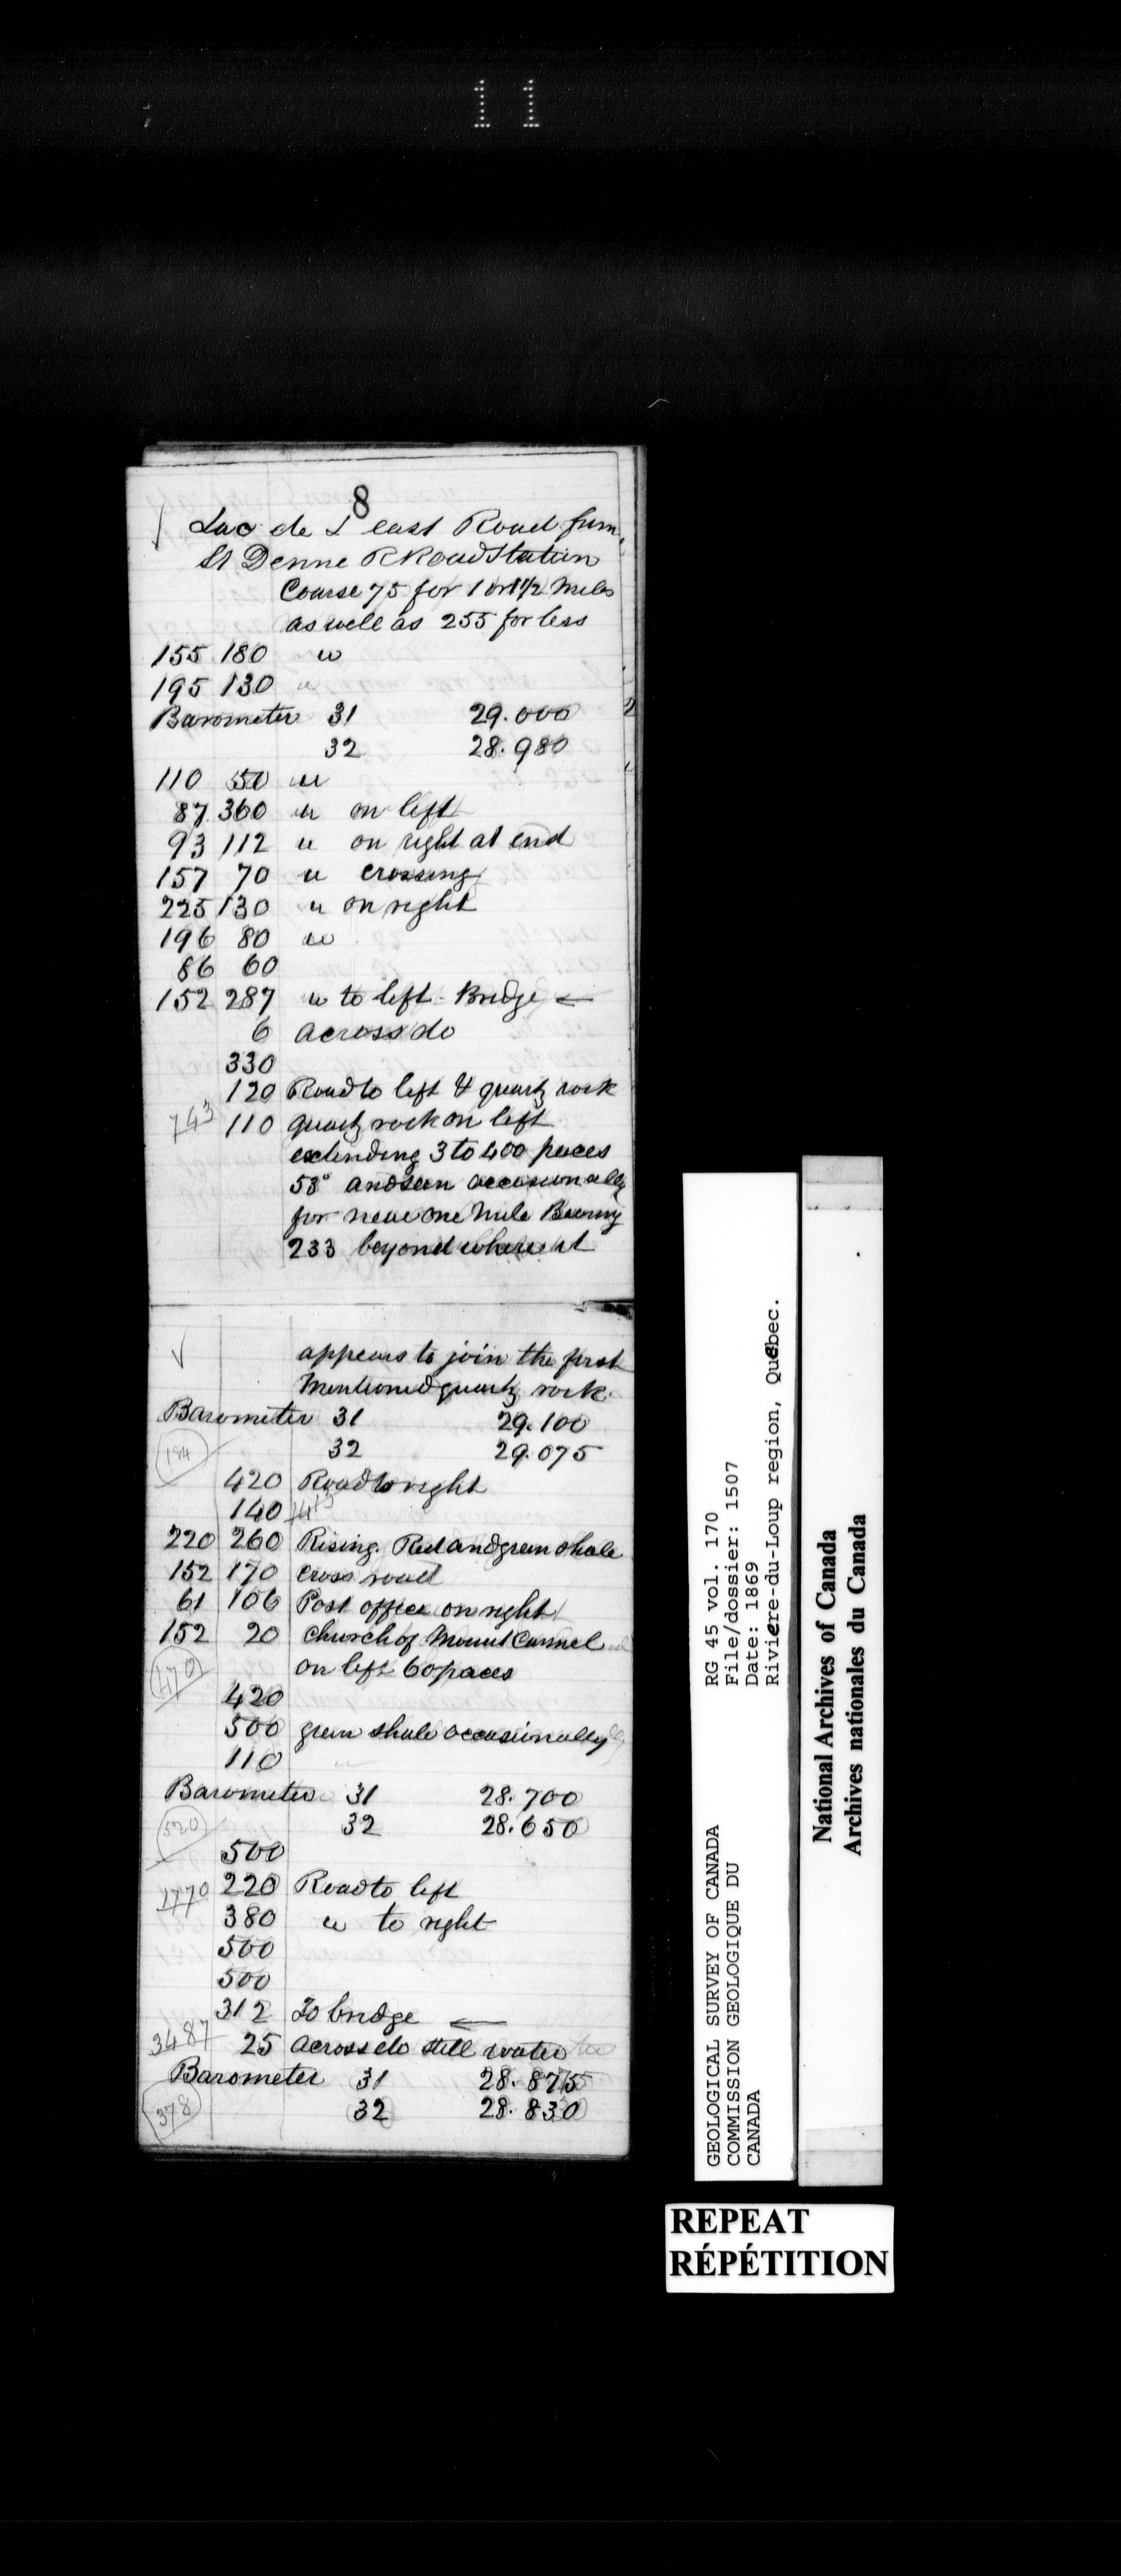 11
8
Lac de L east Road from
St Denne R Road Station
Course 75 for 1 or 1 1/2 Miles
as well as 255 for less
155 180 "
195 130 "
Barometer 31 29.000
32 28.980
110 50 "
87 360 " on left
93 112 " on right at end
157 70 " crossing
225 130 " on right
196 80 "
86 60
152 287 " to left - Bridge ←
6 across do
330
120 Road to left & quartz rock
743 110 quartz rock on left
extending 3 to 400 paces
53° and seen occasionally
for near one mile Bearing
233 beyond where it
appears to join the first
Mentioned quartz rock.
Barometer 31 29.100
194 32 29.075
420 Road to right
140
220 260 Rising. Red and green shale
152 170 cross road
61 106 Post office on right
152 20 church of Mount Carmel
470 on left 60 paces
420
500 green shale occasionally
110
Barometer 31 28.700
520 32 28.650
500
1770 220 Road to left
380 " to right
500
500
312 To bridge ←
3487 25 across do still water
Barometer 31 28.875
378 32 28.830
GEOLOGICAL SURVEY OF CANADA
COMMISSION GEOLOGIQUE DU
CANADA
RG 45 vol. 170
File/dossier: 1507
Date: 1869
Riviere-du-Loup region, Quebec.
National Archives of Canada
Archives nationales du Canada
REPEAT
RÉPÉTITION